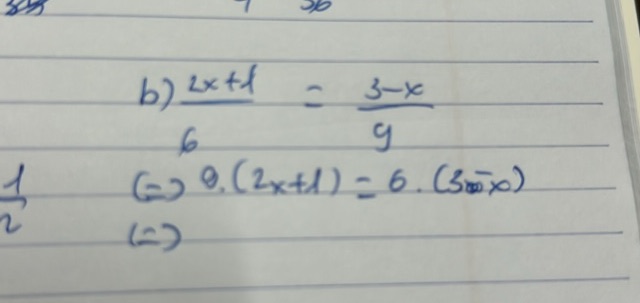 b) 2x+1 / 6 = 3-x / 9
1/2
(=) 9.(2x+1) = 6.(3-x)
(=)